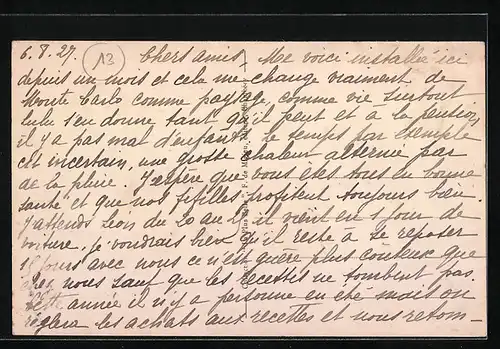 6.8.27. 13 Chers amis, Me voici installée ici
depuis un mois et cela me change vraiment de
Monte Carlo comme paysage, comme vie surtout
lulu s'en donne tant qu'il peut et à la pension
il y a pas mal d'enfants, le temps par exemple
est incertain, une grosse chaleur alternée par
de la pluie. J'espère que vous êtes tous en bonne
santé et que nos fifilles profitent toujours bien.
J'attends Léon du 10 au il vient en 1 jour de
voiture, je voudrais bien qu'il reste à se reposer
jours avec nous ce n'est guère plus couteux que
chez nous sauf que les recettes ne tombent pas.
Cette année il n'y a personne en été mais on
règlera les achats aux recettes et nous retom-